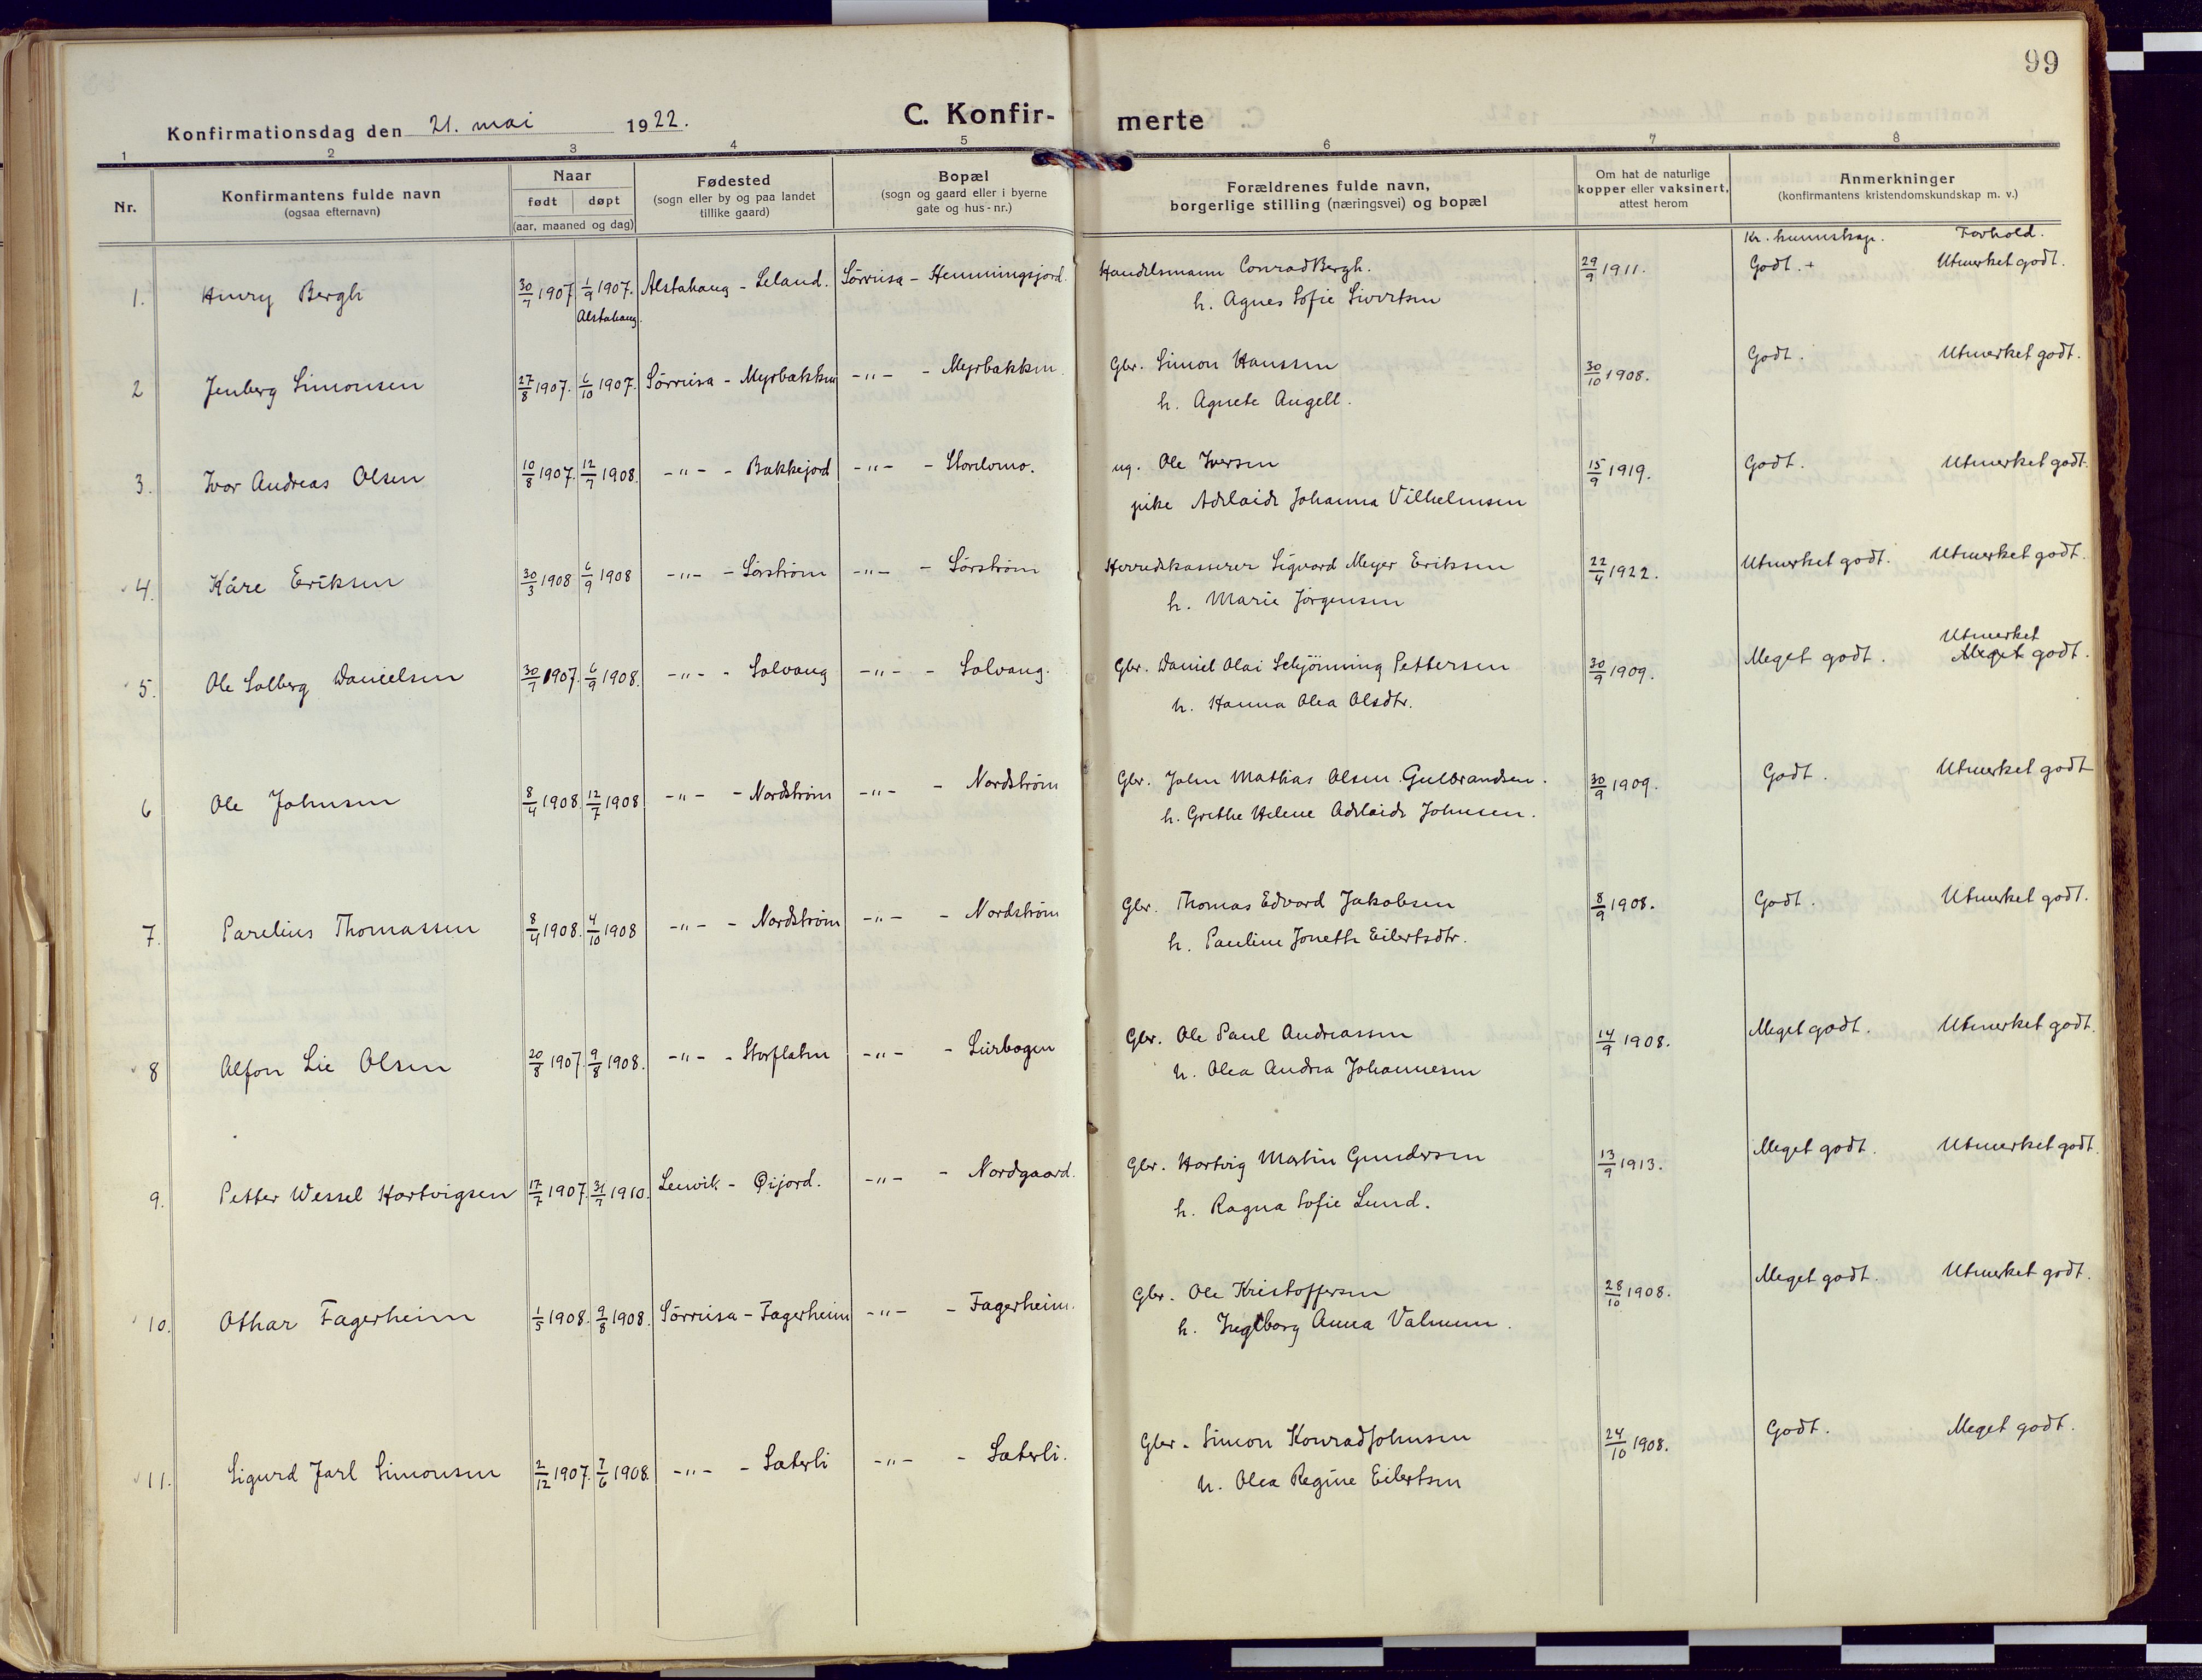 99
C. Konfir- merte
Konfirmationsdag den 21. mai 1922.
1 2 3 4 5 6 7 8
Nr. Konfirmantens fulde navn (ogsaa efternavn) Naar født døpt (aar, maaned og dag) Fødested (sogn eller by og paa landet tillike gaard) Bopæl (sogn og gaard eller i byerne gate og hus-nr.) Forældrenes fulde navn, borgerlige stilling (næringsvei) og bopæl Om hat de naturlige kopper eller vaksinert, attest herom Anmerkninger (konfirmantens kristendomskundskap m. v.)
Kr. kunnskap. Forhold.
1. Henry Bergh 30/7 1907 1/9 1907. Alstahaug - Leland. Sørreisa - Hemmingsjord. Handelsmann Conrad Bergh. 29/9 1911. Godt. + Utmerket godt.
Alstahaug. h. Agnes Sofie Sivertsen
2 Jenberg Simonsen 27/8 1907. 6/10 1907. Sørreisa - Myrbakken -"- - Myrbakken. Gbr. Simon Hanssen 30/10 1908. Godt. Utmerket godt.
h. Agnete Angell.
3. Ivar Andreas Olsen 10/8 1907. 12/7 1908. -"- - Bakkejord -"- - Storelvmo. ug. Ole Iversen 15/9 1919. Godt. Utmerket godt.
pike Adelaide Johanna Vilhelmsen
4. Kåre Eriksen 30/3 1908 6/9 1908 -"- - Sørstrøm -"- - Sørstrøm Herredskasserer Sigvard Meyer Eriksen 22/4 1922. Utmerket godt. Utmerket godt.
h. Marie Jørgensen
5. Ole Solberg Danielsen 30/7 1907. 6/9 1908. -"- - Solvang -"- - Solvang. Gbr. Daniel Olai Schjønning Pettersen 30/9 1909. Meget godt. Utmerket Meget godt.
h. Hanna Olea Olsdtr.
6 Ole Johnsen 8/4 1908. 12/7 1908 -"- - Nordstrøm -"- - Nordstrøm Gbr. John Mathias Olsen Gulbrandsen. 30/9 1909. Godt. Utmerket godt
h. Grethe Helene Adelaide Johnsen.
7. Parelius Thomassen 8/4 1908. 4/10 1908 -"- - Nordstrøm -"- - Nordstrøm Gbr. Thomas Edvard Jakobsen 8/9 1908. Godt. Utmerket godt.
h. Pauline Jonette Eilertsdtr.
8 Alfon Lie Olsen 20/8 1907. 9/8 1908. -"- - Storflaten -"- - Leirbogen Gbr. Ole Paul Andreassen 14/9 1908. Meget godt. Utmerket godt.
h. Olea Andrea Johannesen
9. Petter Wessel Hartvigsen 17/7 1907. 31/7 1910. Lenvik - Øijord. -"- - Nordgaard. Gbr. Hartvig Martin Gundersen 13/9 1913. Meget godt. Utmerket godt.
h. Ragna Sofie Lund.
10. Othar Fagerheim 1/5 1908. 9/8 1908. Sørreisa - Fagerheim -"- - Fagerheim. Gbr. Ole Kristoffersen 28/10 1908. Meget godt. Utmerket godt.
h. Ingeborg Anna Valnum.
11. Sigurd Jarl Simonsen 2/12 1907. 7/6 1908. -"- - Sæterli -"- - Sæterli. Gbr. Simon Konrad Johnsen 24/10 1908. Godt. Meget godt.
h. Olea Regine Eilertsen